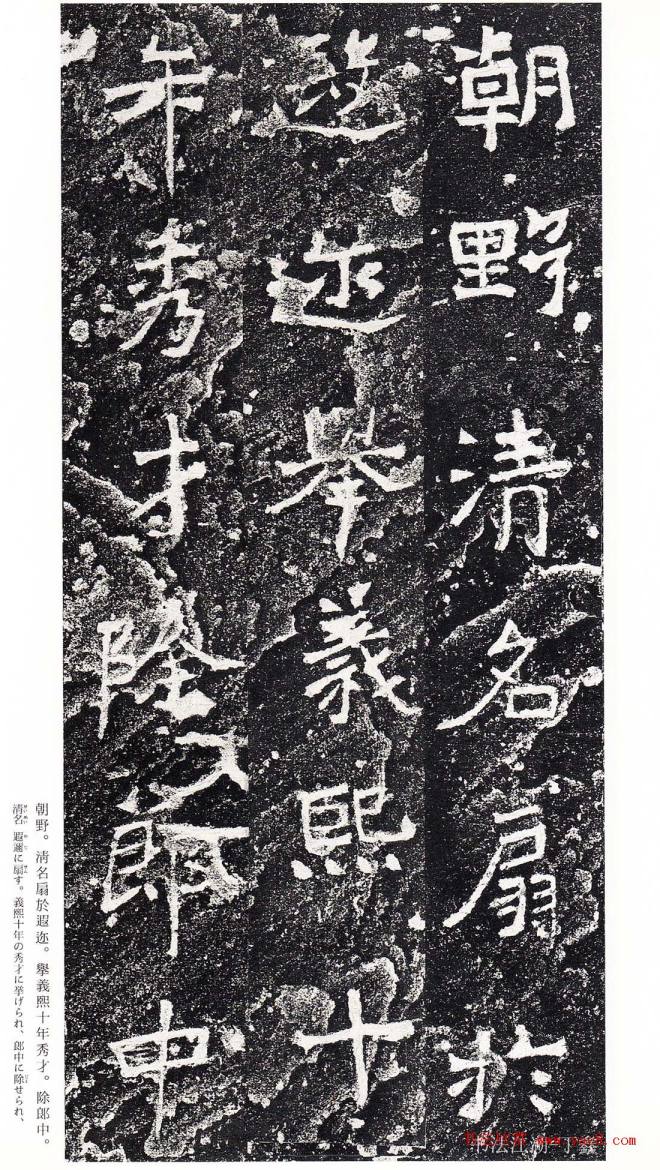 朝野清名扇於
遐迩舉義熙十
年秀才除郎中
朝野。清名扇於遐迩。擧義熙十年秀才。除郎中。
清名 遐邇に扇す。義熙十年の秀才に挙げられ、郎中に除せられ、
www.yac8.com